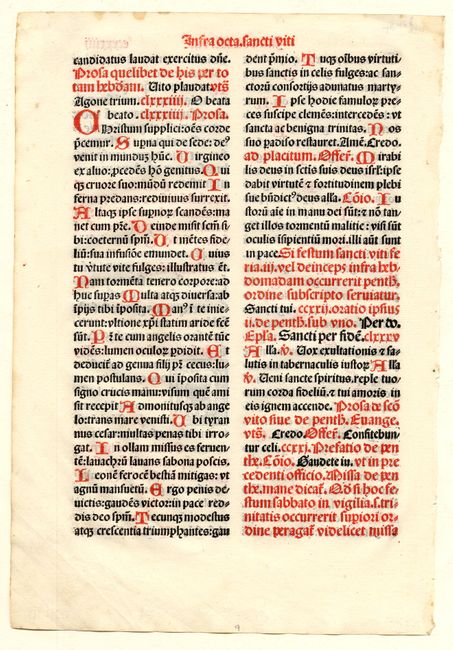 Infra octa. sancti viti
candidatus laudat exercitus dñe.
Prosa quelibet de his per to
tam hebdam. Uito plaudat vts̄
Agone trium. clxxxiiij. O beata
beato. clxxxiiij. Prosa.
O Christum supplici: oēs corde
p̄cemur. Supna qui de sede: de?
venit in mundum hūc. Uirgineo
ex aluo: pcedēs hō genitus. Qui
qꝫ cruore suo: mūdū redemit In
ferna predans: rediuiuus surrexit.
Altaqꝫ ipse supnoꝝ scandēs: ma
net cum pr̄e. Deinde misit sem̄ si-
bi: coeternū spm̄. Ut mētes fide-
liū: sua infusiōe emundet. Quius
tu v̄tute vite fulges: illustratus ēt.
Nam tormēta tenero corpore: ad
huc supas Multa atqꝫ diuersa: ab
ip̄ijs tibi īposita. Man? i te inie-
cerunt: vltione xp̄i statim aride feē
sūt. Pr̄ te cum angelis orantē tūc
vidēs: lumen oculoꝝ pdidit. Et
deduciť ad genua filij pr̄ cecus: lu-
men postulans. Qui īposita cum
signo crucis manu: visum quē ami
sit recepit Admonitusqꝫ ab ange
lo: trans mare venisti. Ubi tyran
nus cesar: multas penas tibi irro-
gat. In ollam missus es feruen-
tē: lauachrū lauans sabona poscis.
Leonē ferocē bestiā mitigas: vt
agnū mansuetū. Ergo penis de-
uictis: gaudēs victor: in pace red-
dis deo spm̄. Tecunqꝫ modestus
atqꝫ crescentia triumphantes: gau
dent p̄mio. Tuqꝫ oībus virtuti-
bus sanctis in celis fulges: ac san-
ctorū consortijs adunatus marty-
rum. Ipse hodie famuloꝝ pre-
ces suscipe clemēs: intercedēs: vt
sancta ac benigna trinitas. Nos
suo padiso restauret. Amē. Credo.
ad placitum. Offeř. Mirabi
lis deus in sctīs suis deus isrl: ipse
dabit virtutē ⁊ fortitudinem plebi
sue bñdict? deus alla. Cōio. Iu
stoꝝ aīe in manu dei sūt: ⁊ nō tan-
get illos tormentū malitie: visi sūt
oculis īsipientiū mori. illi aūt sunt
in pace. Si festum sancti viti fe
ria. iij. vel deinceps infra heb-
domadam occurrerit penth.
ordine subscripto seruiatur.
Sancti tui. ccxxij. oratio ipsius
ii. de penth. sub vno. Per dn̄.
Epla. Sancti per fidē. clxxxv
Alla. v̄. Uox exultationis ⁊ sa-
lutis in tabernaculis iustoꝝ Alla
v̄. Ueni sancte spiritus. reple tuo-
rum corda fideliū: ⁊ tui amoris in
eis ignem accende. Prosa de scō
vito siue de penth. Euange.
vts̄. Credo. Offeř. Confitebun
tur celi. ccxxj. Prefatio de pen
the. Cōio. Gaudete iu. vt in pre
cedenti officio. Missa de pen
the. mane dicať. Qd̄ si hoc fe-
stum sabbato in vigilia. s. tri-
nitatis occurrerit supiori or-
dine peragať videlicet missa